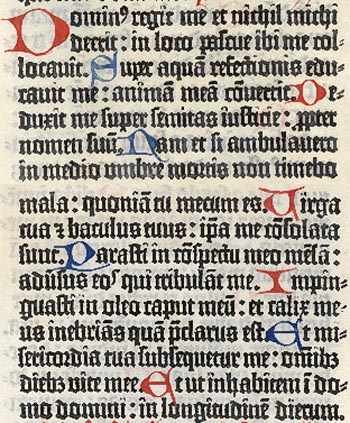 Dominꝰ regit me et nichil michi
deerit : in loco pascue ibi me col-
locauit. Super aquā refectionis edu-
cauit me : animā meā cōuertit. De-
duxit me super semitas iusticie : ꝓpter
nomen suū. Nam et si ambulauero
in medio umbre mortis non timebo
mala : quoniā tu mecum es. Uirga
tua ⁊ baculus tuus : ip̄a me cōsolata
sunt. Parasti in cōspectu meo mēsā :
aduersus eoˢ qui tribulāt me. Impin-
guasti in oleo caput meū : et calix me-
us inebriās quā p̄clarus est. Et mi-
sericordia tua subsequetur me : omībꝫ
diebꝫ vite mee. Et ut inhabitem ī do-
mo domini : in longitudinē dierum.